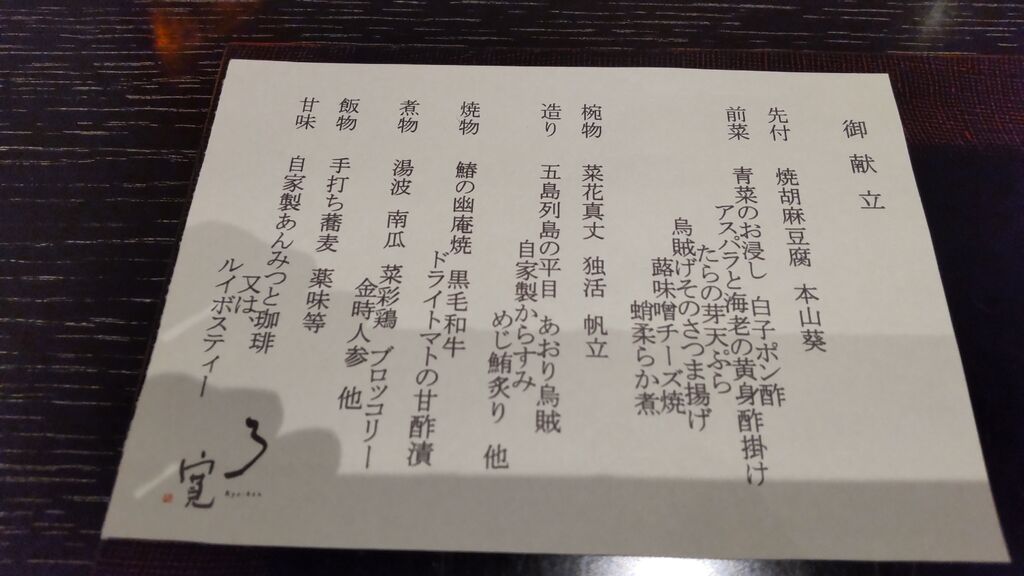 御献立
先付 焼胡麻豆腐 本山葵
前菜 青菜のお浸し 白子ポン酢
アスパラと海老の黄身酢掛け
たらの芽天ぷら
烏賊げそのさつま揚げ
蕗味噌チーズ焼
蛸柔らか煮
椀物 菜花真丈 独活 帆立
造り 五島列島の平目 あおり烏賊
自家製からすみ
めじ鮪炙り 他
焼物 鰆の幽庵焼 黒毛和牛
ドライトマトの甘酢漬
煮物 湯波 南瓜 菜彩鶏 ブロッコリー
金時人参 他
飯物 手打ち蕎麦 薬味等
甘味 自家製あんみつと珈琲
又は、
ルイボスティー
了寛
Ryo-kan